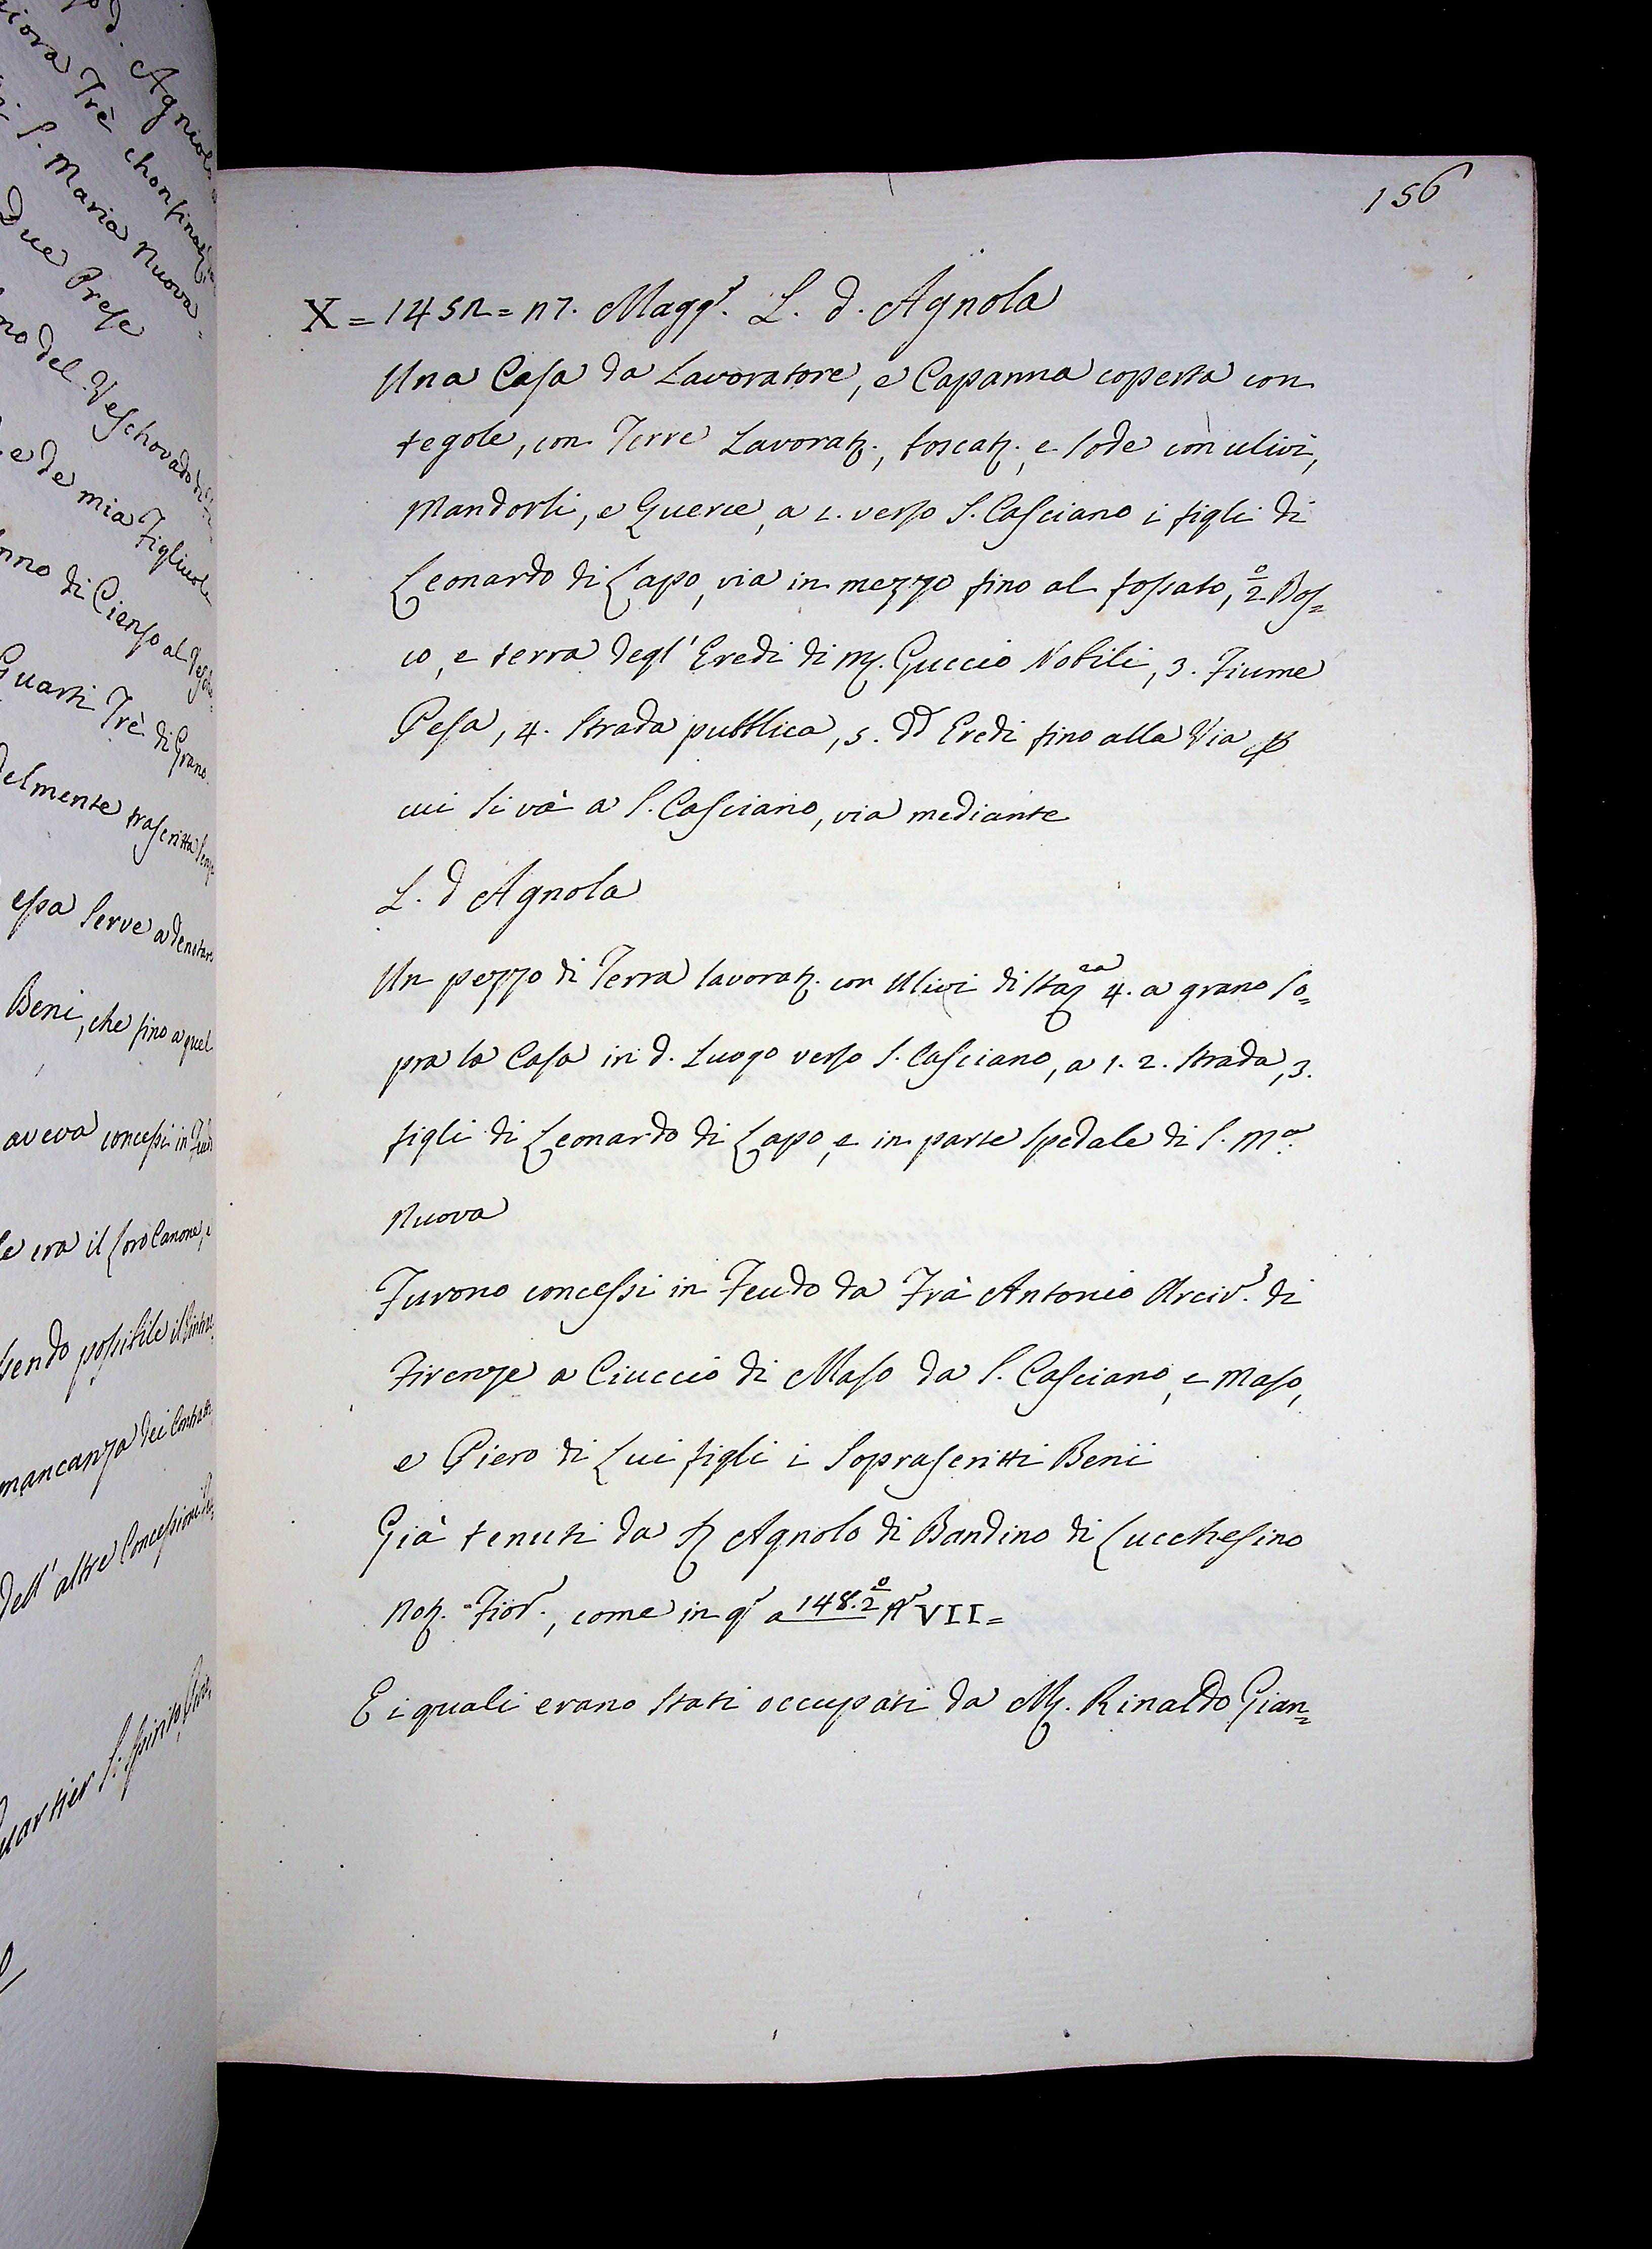 d. Agniolo
iora Trè chonfina
S. Maria Nuova
Due Prese
no del Veschovado di
e de mia Figliuol
nno di Cienso al
Guarti Trè di Grano
delmente trascritta
essa serve a denotare
Beni, che fino a quel
aveva concessi in Feudo
le era il loro Canone, e
sendo possibile il
mancanza dei Contratti
dell' altre Concessioni
uartier S. Spirito
156
X = 1452 = 17. Magg.e L. d. Agnola
Una Casa da Lavoratore, e Capanna coperta con
tegole, con Terre Lavorat., boscat., e sode con ulivi,
Mandorli, e Querce, a 1. verso S. Casciano i figli di
Leonardo di Lapo, via in mezzo fino al fossato, 2.o Bos=
co, e terra degl' Eredi di M. Guccio Nobili, 3. Fiume
Pesa, 4. Strada pubblica, 5. dd. Eredi fino alla Via p
cui si và a S. Casciano, via mediante
L. d Agnola
Un pezzo di Terra lavorat. con Ulivi di Staz.ra 4. a grano so=
pra la Casa in d. Luogo verso S. Casciano, a 1. 2. Strada, 3.
figli di Leonardo di Lapo, e in parte Spedale di S. M.a
Nuova
Furono concessi in Feudo da Frà Antonio Arciv.e di
Firenze a Ciuccio di Maso da S. Casciano, e Maso,
e Piero di Lui figli i Soprascritti Beni
Già tenuti da S. Agnolo di Bandino di Lucchesino
Not. Fior., come in q. a 148. 2.o VII=
E i quali erano stati occupati da M. Rinaldo Gian=